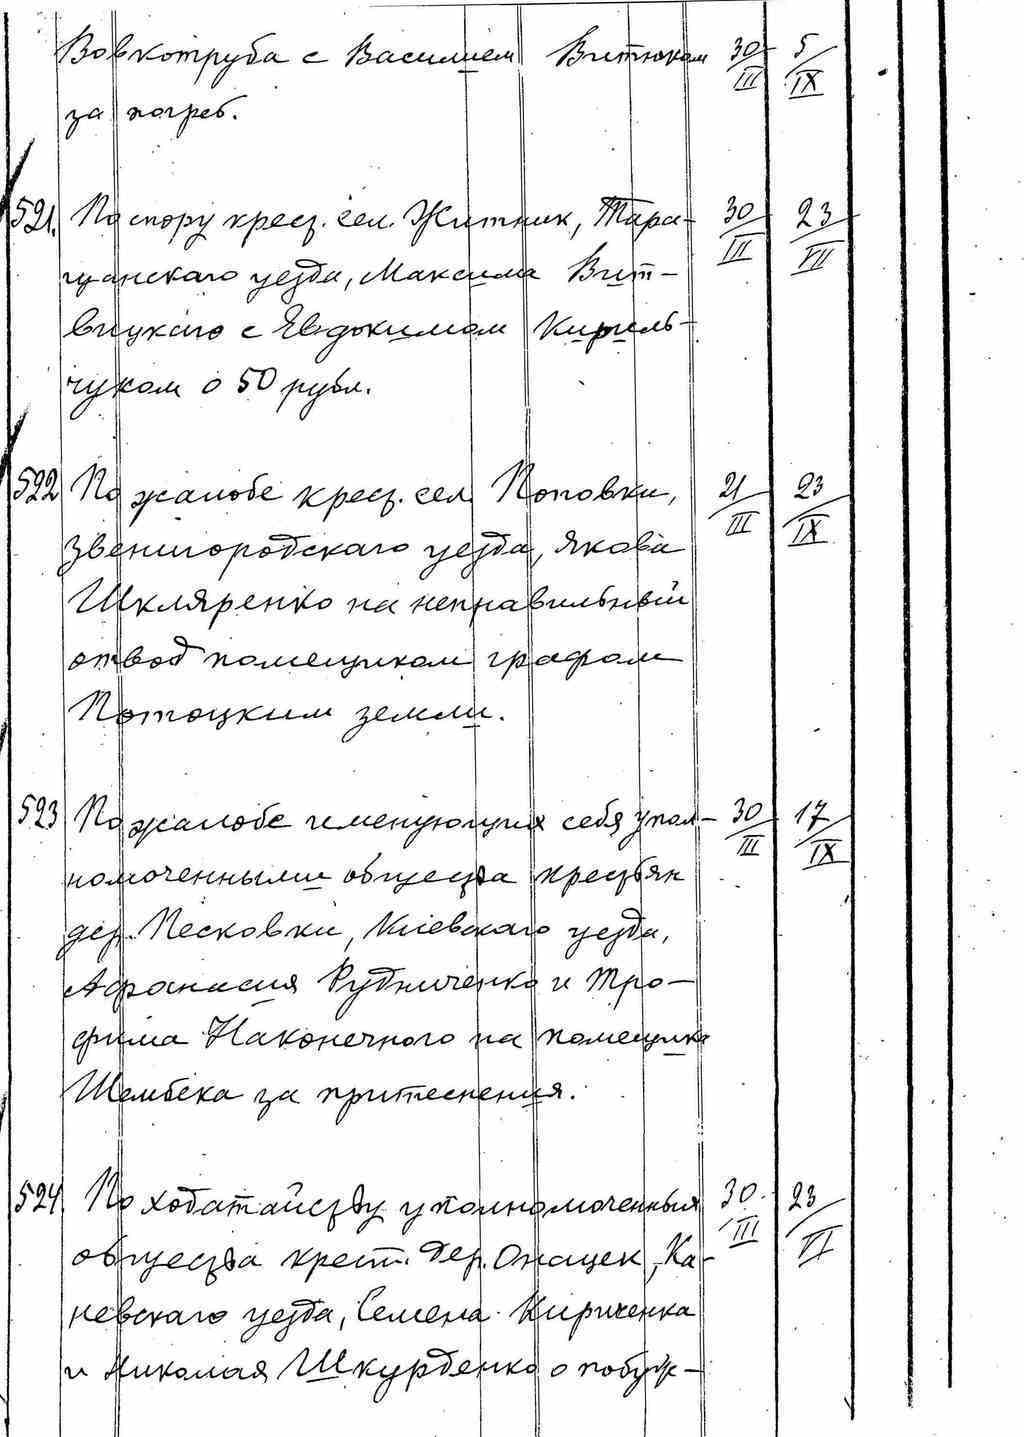 Вовкотруба с Василием Витюком 30/III 5/IX
за погреб.
521. По спору крест. сел. Житник, Тара- 30/III 23/VII
щанскаго уезда, Максима Вит-
вицкаго с Евдокимом Кириль-
чуком о 50 рубл.
522 По жалобе крест. сел. Поповки, 21/III 23/IX
Звенигородскаго уезда, Якова
Шкляренко на неправильный
отвод помещиком графом
Потоцким земли.
523 По жалобе именующих себя упол- 30/III 17/IX
номоченными общества крестьян
дер. Песковки, Киевскаго уезда,
Афанасия Рудниченко и Тро-
фима Наконечного на помещика
Шембека за притеснения.
524. По ходатайству уполномоченных 30/III 23/VI
общества крест. дер. Онацек, Ка-
невскаго уезда, Семена Кириченка
и Николая Шкурденко о побуж-